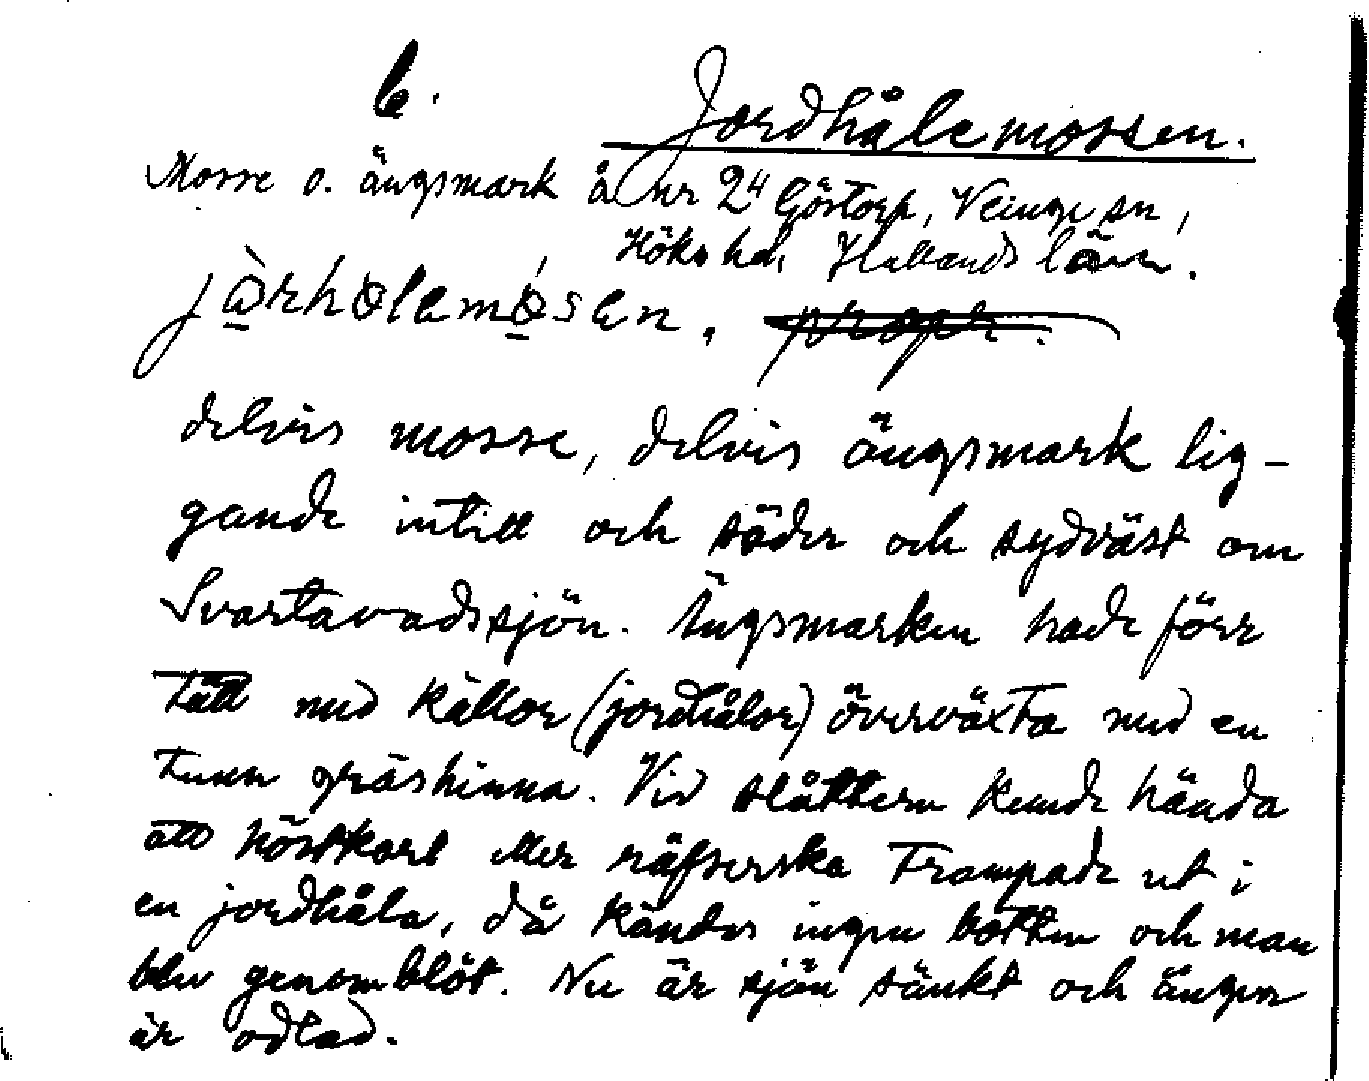 6. Jordhålemossen.
Mosse o. ängsmark å nr 24 Göstorp, Veinge sn,
Höks hd, Hallands län.
jàrhålemósen. propr.
delvis mosse, delvis ängsmark lig-
gande intill och söder och sydväst om
Svartavadsjön. Ängsmarken hade förr
tätt med källor (jordhålor) överväxta med en
tunn gräshinna. Vid slåttern kunde hända
att höstkarl eller räfserska trampade ut i
en jordhåla, då kändes ingen botten och man
blev genomblöt. Nu är sjön sänkt och ängen
är odlad.